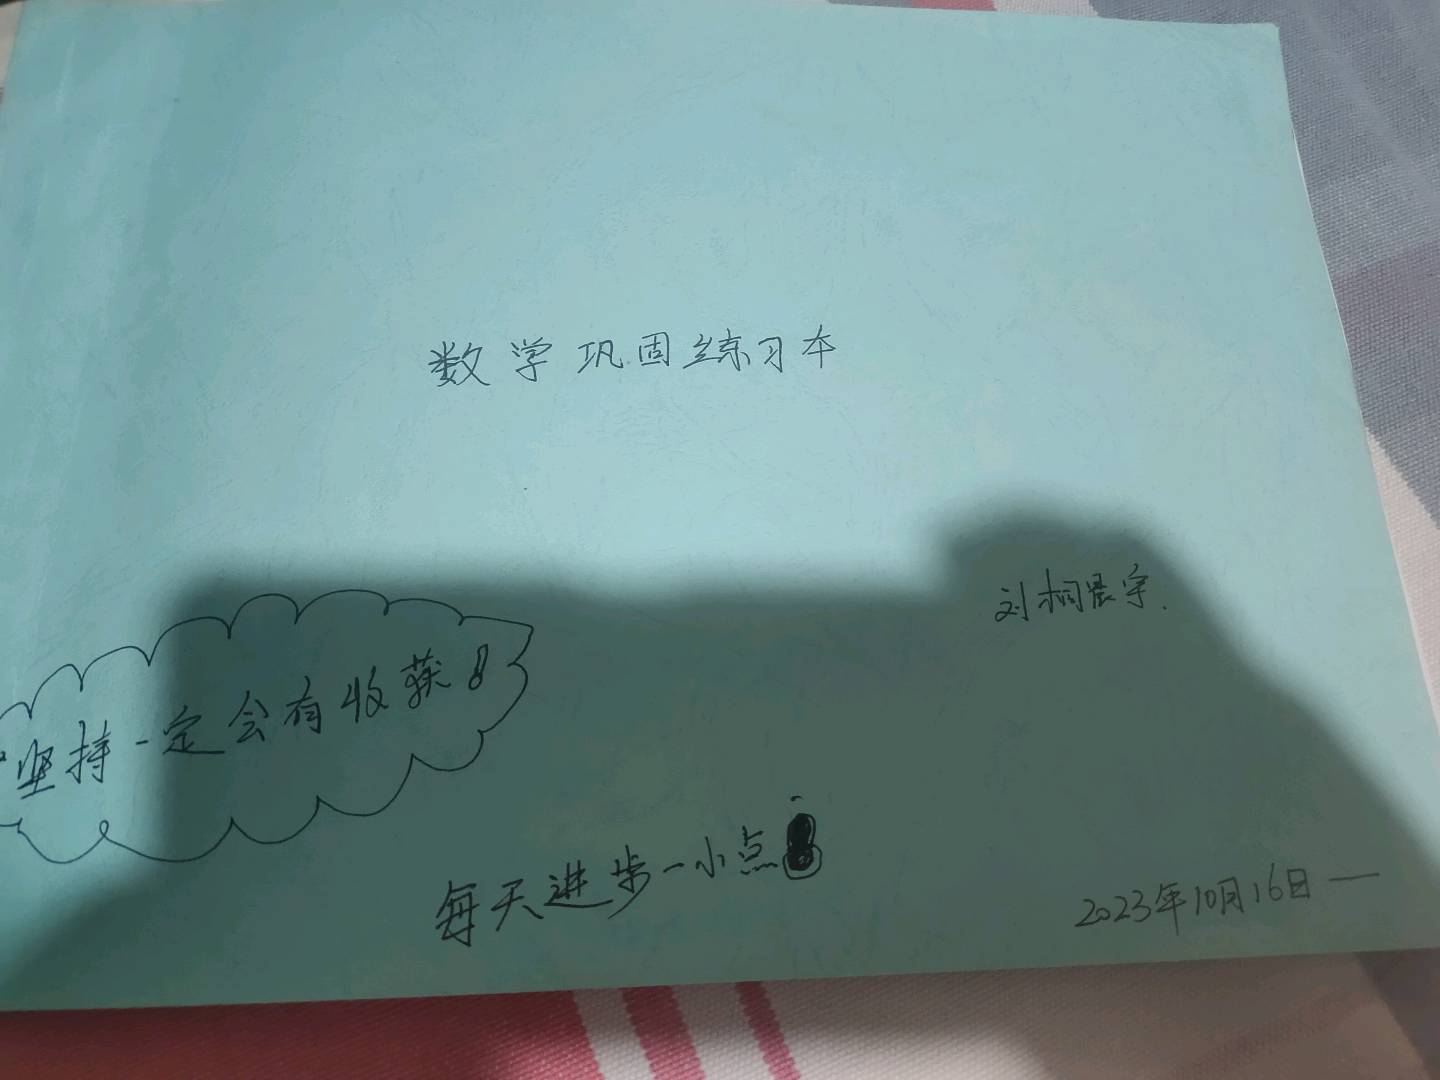 数学巩固练习本
刘桐晨宇.
坚持一定会有收获!
每天进步一小点!
2023年10月16日—